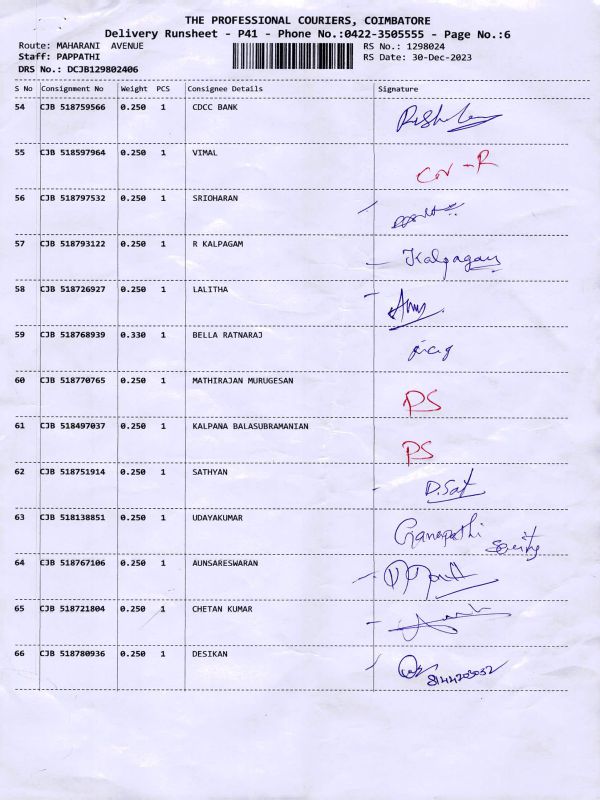 THE PROFESSIONAL COURIERS, COIMBATORE
Delivery Runsheet - P41 - Phone No.:0422-3505555 - Page No.:6
Route: MAHARANI AVENUE RS No.: 1298024
Staff: PAPPATHI RS Date: 30-Dec-2023
DRS No.: DCJB129802406
S No Consignment No Weight PCS Consignee Details Signature
54 CJB 518759566 0.250 1 CDCC BANK
55 CJB 518597964 0.250 1 VIMAL
56 CJB 518797532 0.250 1 SRIOHARAN
57 CJB 518793122 0.250 1 R KALPAGAM Kalpagam
58 CJB 518726927 0.250 1 LALITHA
59 CJB 518768939 0.330 1 BELLA RATNARAJ
60 CJB 518770765 0.250 1 MATHIRAJAN MURUGESAN PS
61 CJB 518497037 0.250 1 KALPANA BALASUBRAMANIAN PS
62 CJB 518751914 0.250 1 SATHYAN D.Sat
63 CJB 518138851 0.250 1 UDAYAKUMAR Ganapathi
64 CJB 518767106 0.250 1 AUNSARESWARAN
65 CJB 518721804 0.250 1 CHETAN KUMAR
66 CJB 518780936 0.250 1 DESIKAN